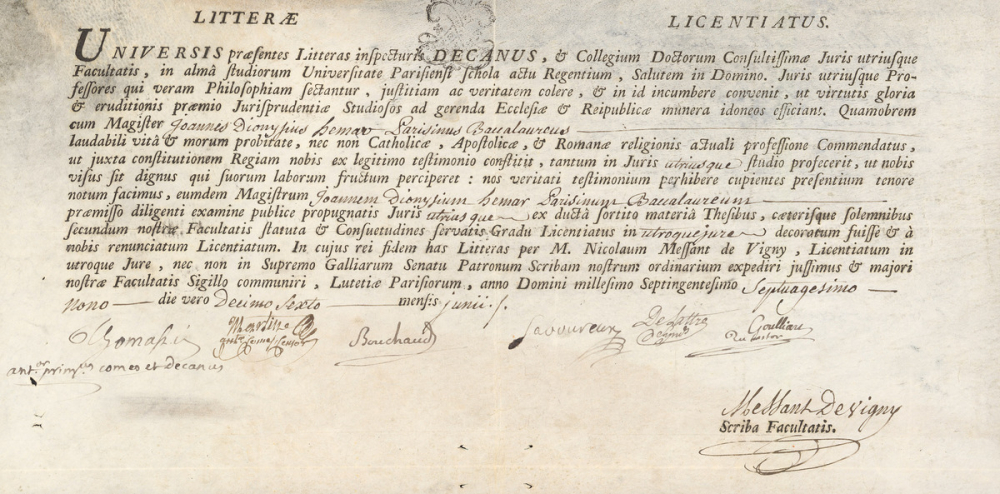 LITTERÆ LICENTIATUS.
UNIVERSIS præsentes Litteras inspecturis DECANUS, & Collegium Doctorum Consultissimæ Juris utriusque
Facultatis, in almâ studiorum Universitate Parisiensi schola actu Regentium, Salutem in Domino. Juris utriusque Pro-
fessores qui veram Philosophiam sectantur, justitiam ac veritatem colere, & in id incumbere convenit, ut virtutis gloria
& eruditionis præmio Jurisprudentiæ Studiosos ad gerenda Ecclesiæ & Reipublicæ munera idoneos efficiant. Quamobrem
cum Magister Joannes Dionysius hemar Parisinus Baccalaureus
laudabili vitâ & morum probitate, nec non Catholicæ, Apostolicæ, & Romanæ religionis actuali professione Commendatus,
ut juxta constitutionem Regiam nobis ex legitimo testimonio constitit, tantum in Juris utriusque studio profecerit, ut nobis
visus sit dignus qui suorum laborum fructum perciperet : nos veritati testimonium perhibere cupientes presentium tenore
notum facimus, eumdem Magistrum Joannem Dionysium hemar Parisinum Baccalaureum
præmisso diligenti examine publice propugnatis Juris utriusque ex ductâ sortito materiâ Thesibus, cæterisque solemnibus
secundum nostræ Facultatis statuta & Consuetudines servatis Gradu Licentiatus in utroque jure decoratum fuisse & à
nobis renunciatum Licentiatum. In cujus rei fidem has Litteras per M. Nicolaum Messant de Vigny, Licentiatum in
utroque Jure, nec non in Supremo Galliarum Senatu Patronum Scribam nostrum ordinarium expediri jussimus & majori
nostræ Facultatis Sigillo communiri, Lutetiæ Parisiorum, anno Domini millesimo Septingentesimo Septuagesimo
nono die vero Decimo Sexto mensis junii
Thomassin Bouchaud Savoureux De Lattre Goulliart
comes et decanus
Messant De Vigny
Scriba Facultatis.